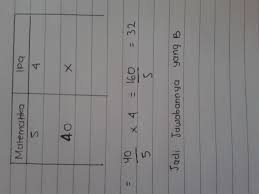 Matematika Ipa
5 4
40 x
= 40/5 x 4 = 160/5 = 32
Jadi Jawabannya yang B